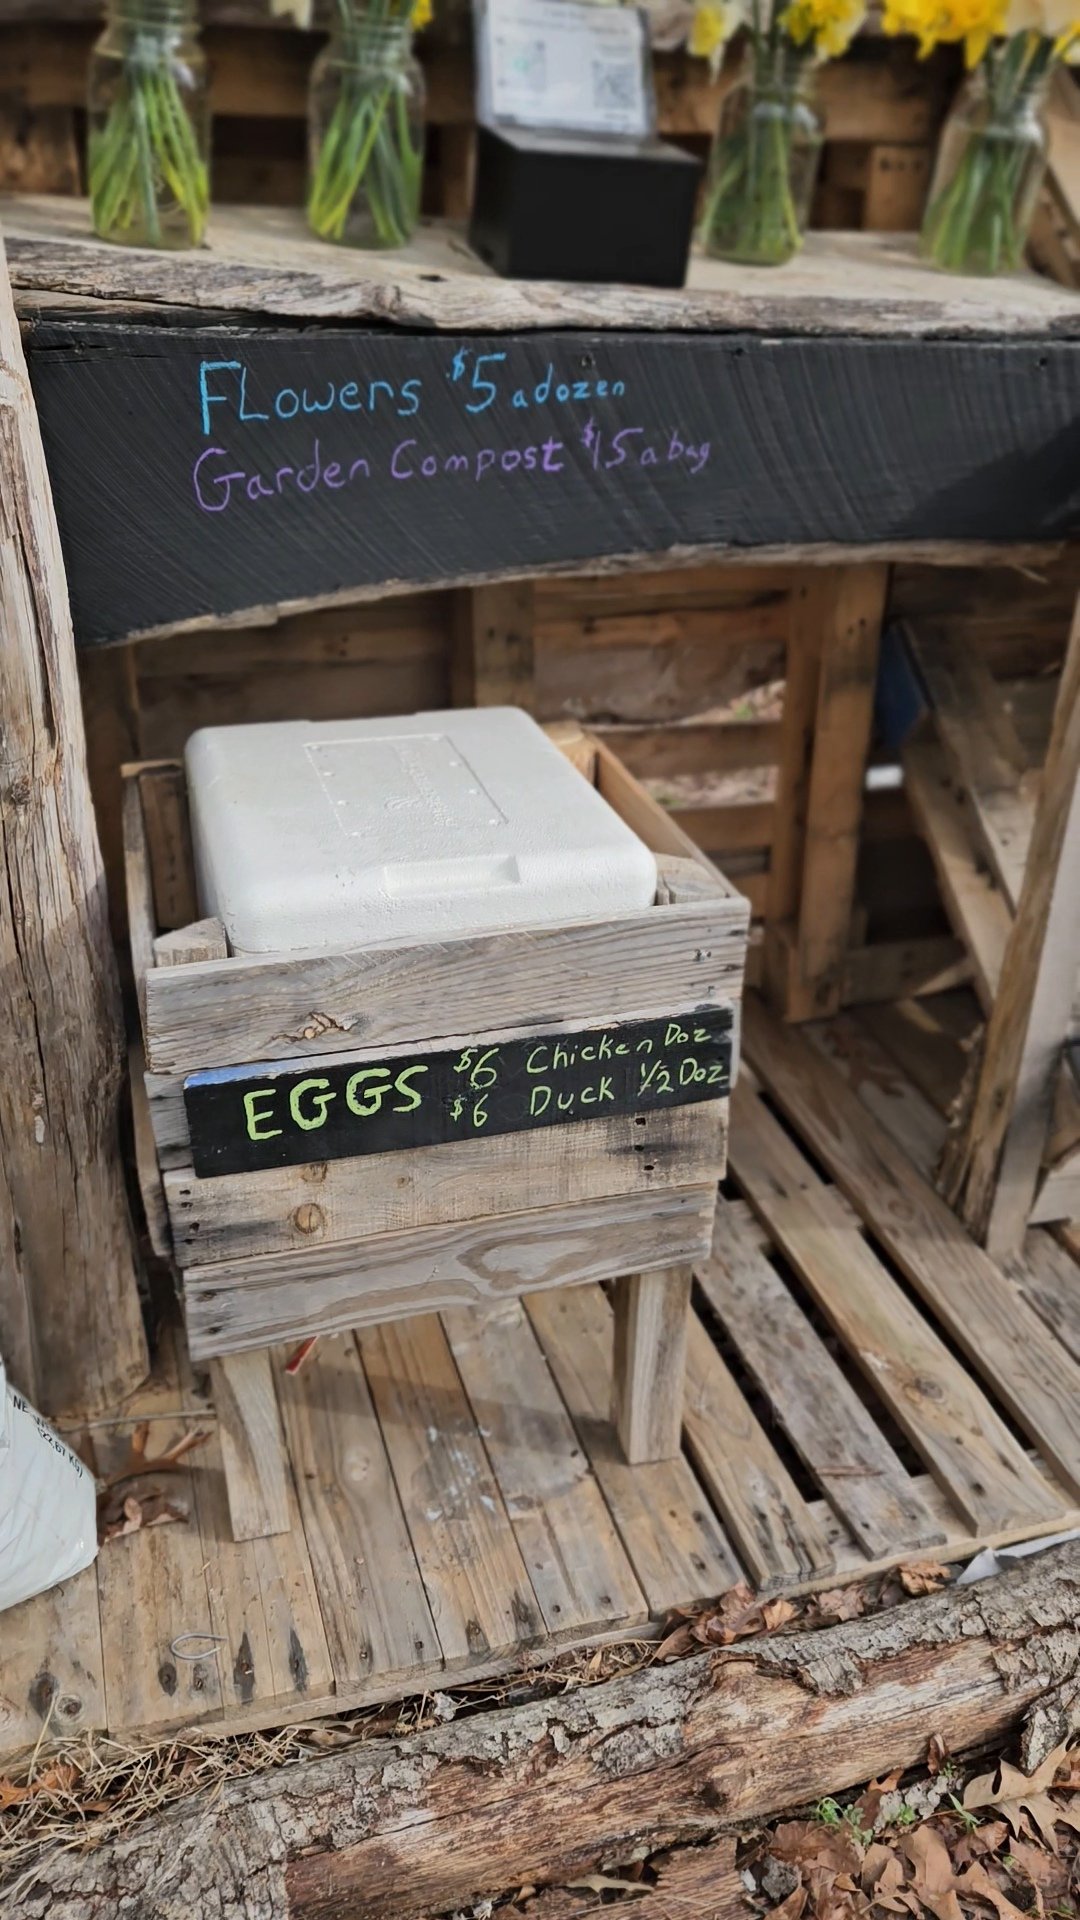 FLowers $5 a dozen
Garden Compost $15 a bag
EGGS $6 Chicken Doz
$6 Duck 1/2 Doz
(22.67 KG)